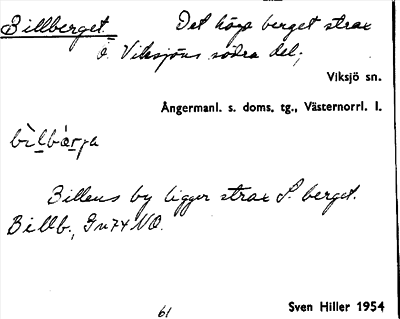 Billberget. Det höga berget strax
ö. Viksjöns södra del;
Viksjö sn.
Ångermanl. s. doms. tg., Västernorrl. l.
Billens by ligger strax S. berget.
Billb., Gn 74 NO.
61
Sven Hiller 1954